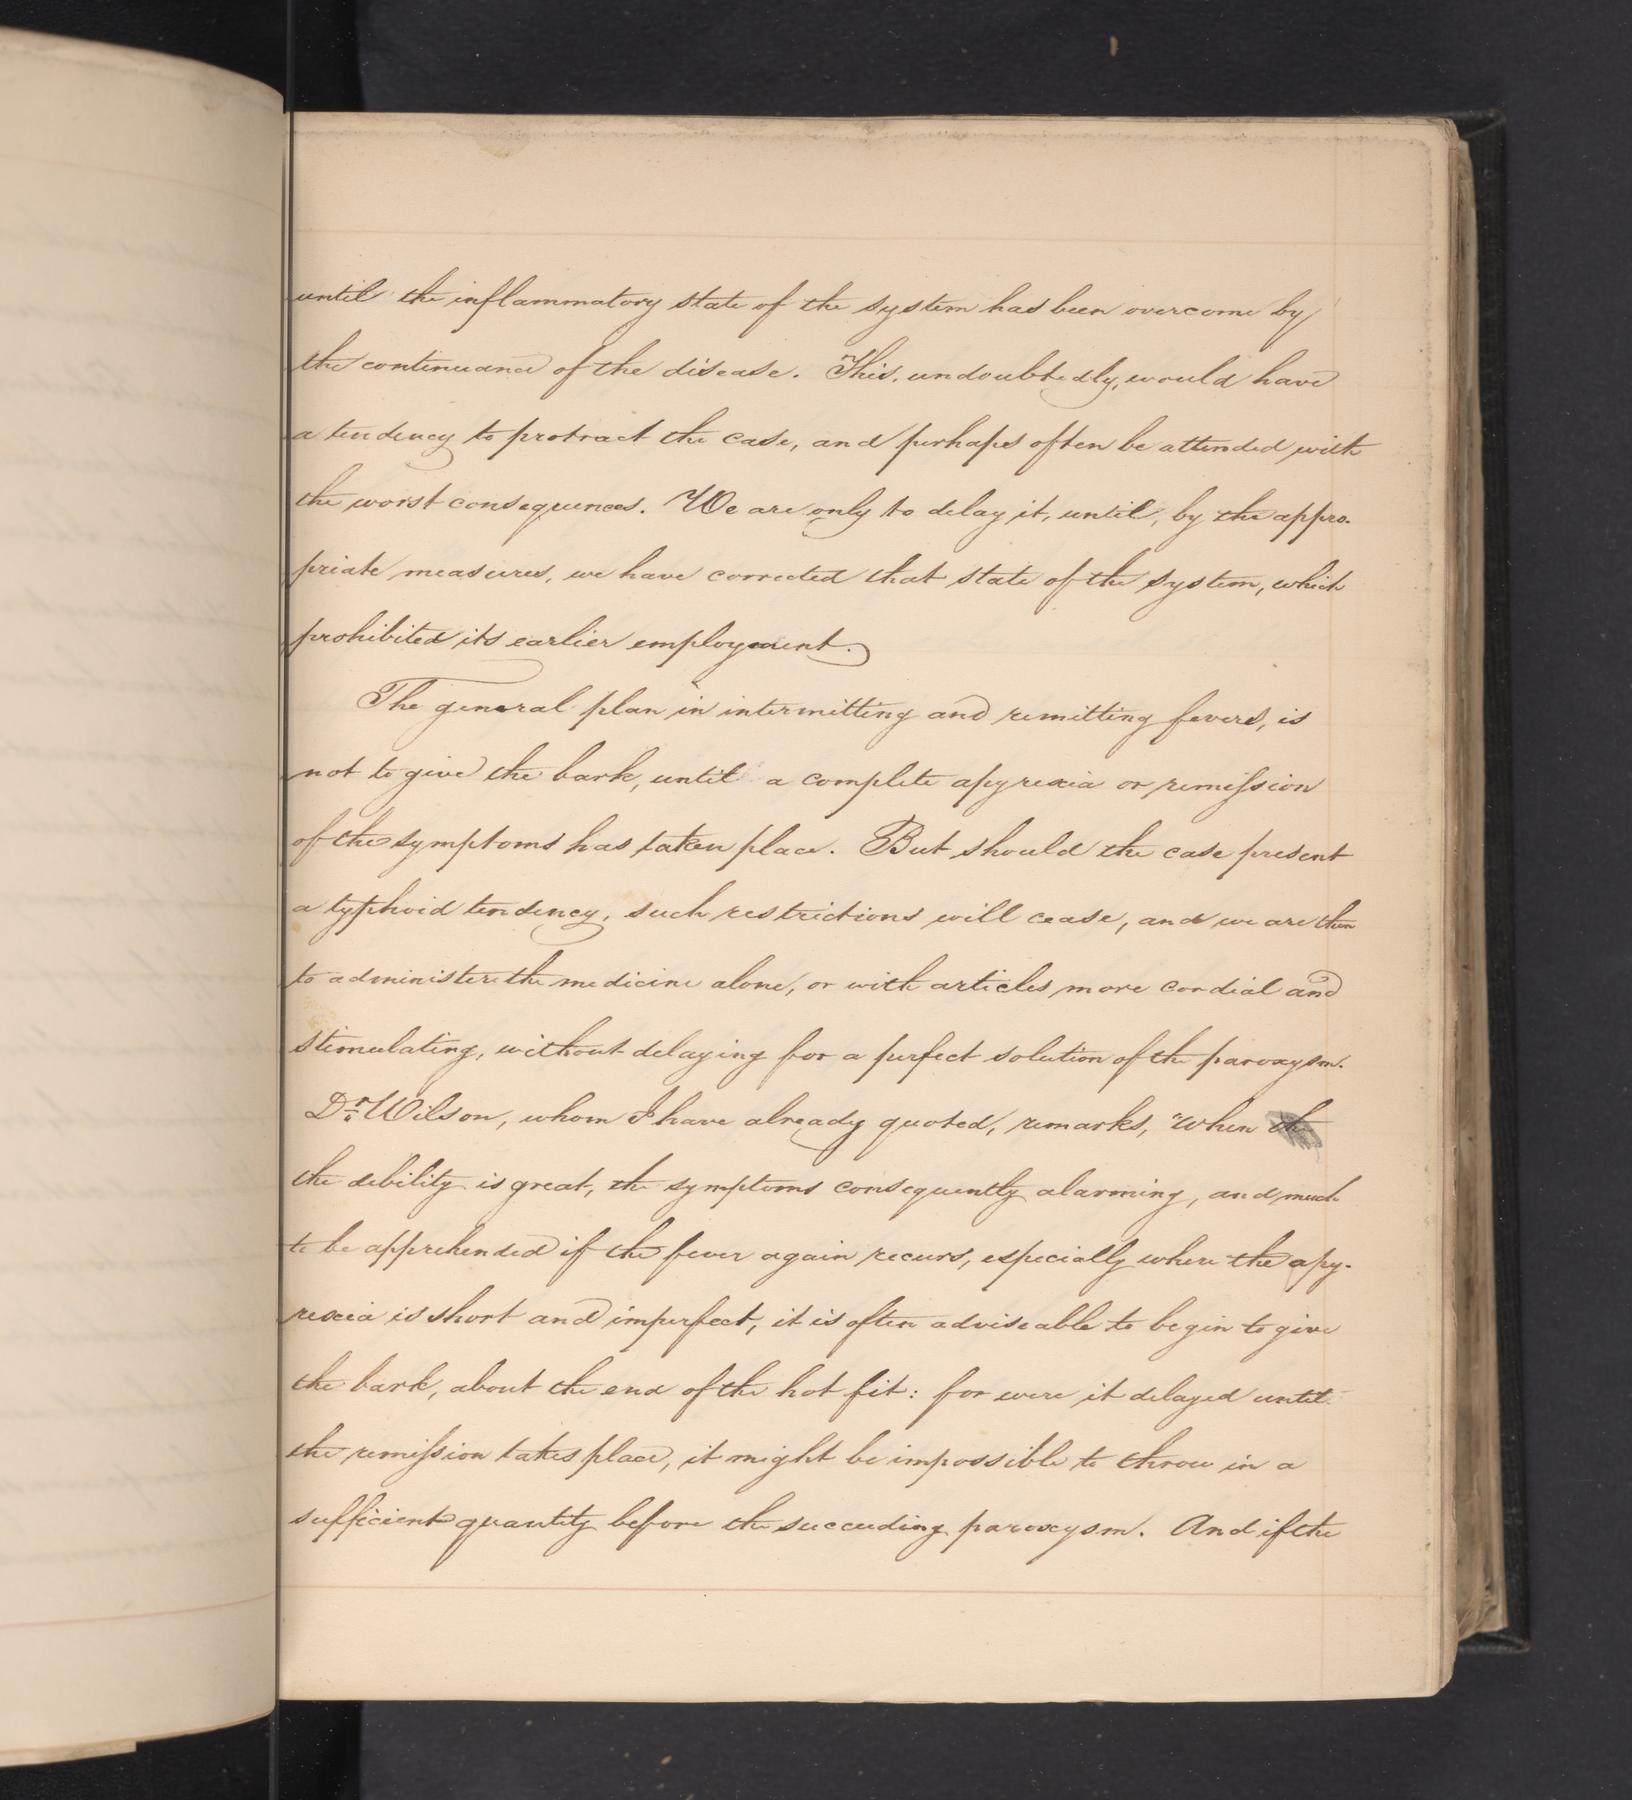 until the inflammatory state of the system has been overcome by
the continuance of the disease. This, undoubtedly, would have
a tendency to protract the case, and perhaps often be attended with
the worst consequences. We are only to delay it, until, by the appro-
priate measures, we have corrected that state of the system, which
prohibited its earlier employment.
The general plan in intermitting and remitting fevers, is
not to give the bark, until a complete apyrexia or remission
of the symptoms has taken place. But should the case present
a typhoid tendency, such restrictions will cease, and we are then
to administer the medicine alone, or with articles more cordial and
stimulating, without delaying for a perfect solution of the paroxysm.
Dr. Wilson, whom I have already quoted, remarks, "when th
the debility is great, the symptoms consequently alarming, and much
to be apprehended if the fever again recurs, especially where the apy-
rexia is short and imperfect, it is often adviseable to begin to give
the bark, about the end of the hot fit: for were it delayed until
the remission takes place, it might be impossible to throw in a
sufficient quantity before the succeeding paroxysm. And if the